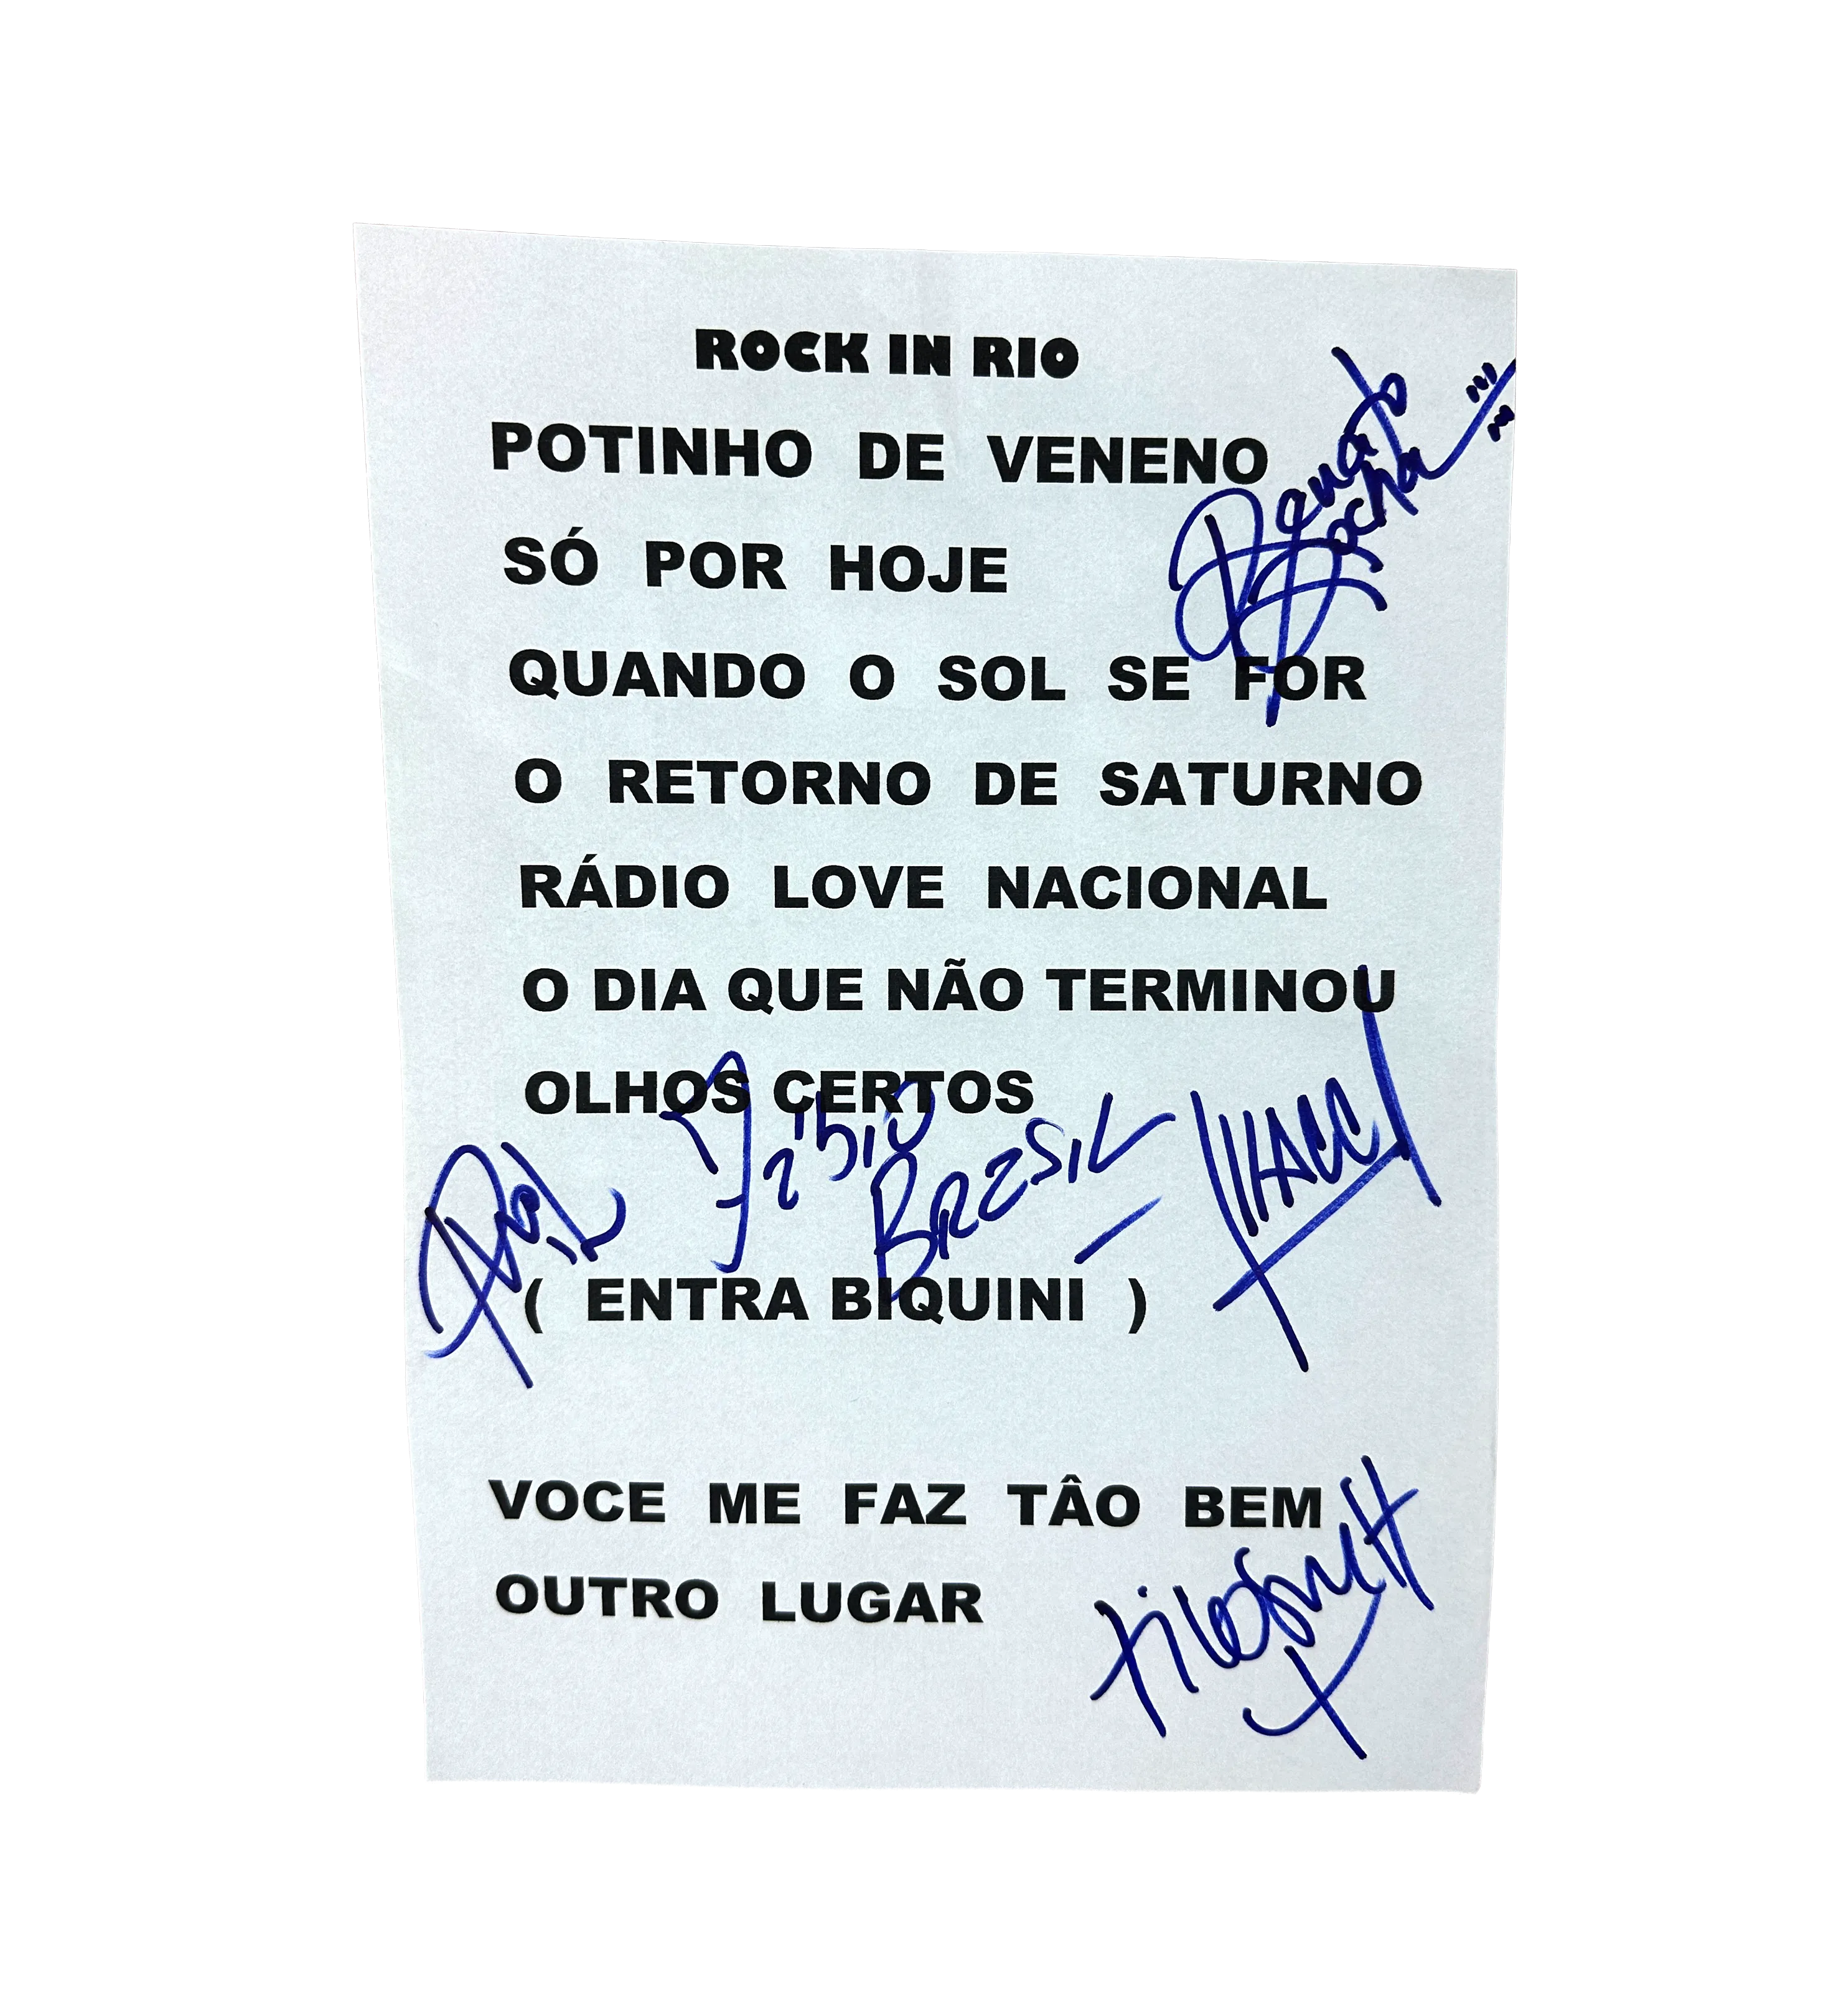 ROCK IN RIO
POTINHO DE VENENO
Renato
Rocha
SÓ POR HOJE
QUANDO O SOL SE FOR
O RETORNO DE SATURNO
RÁDIO LOVE NACIONAL
O DIA QUE NÃO TERMINOU
OLHOS CERTOS
Fábio
BRASIL
( ENTRA BIQUINI )
VOCE ME FAZ TÂO BEM
OUTRO LUGAR